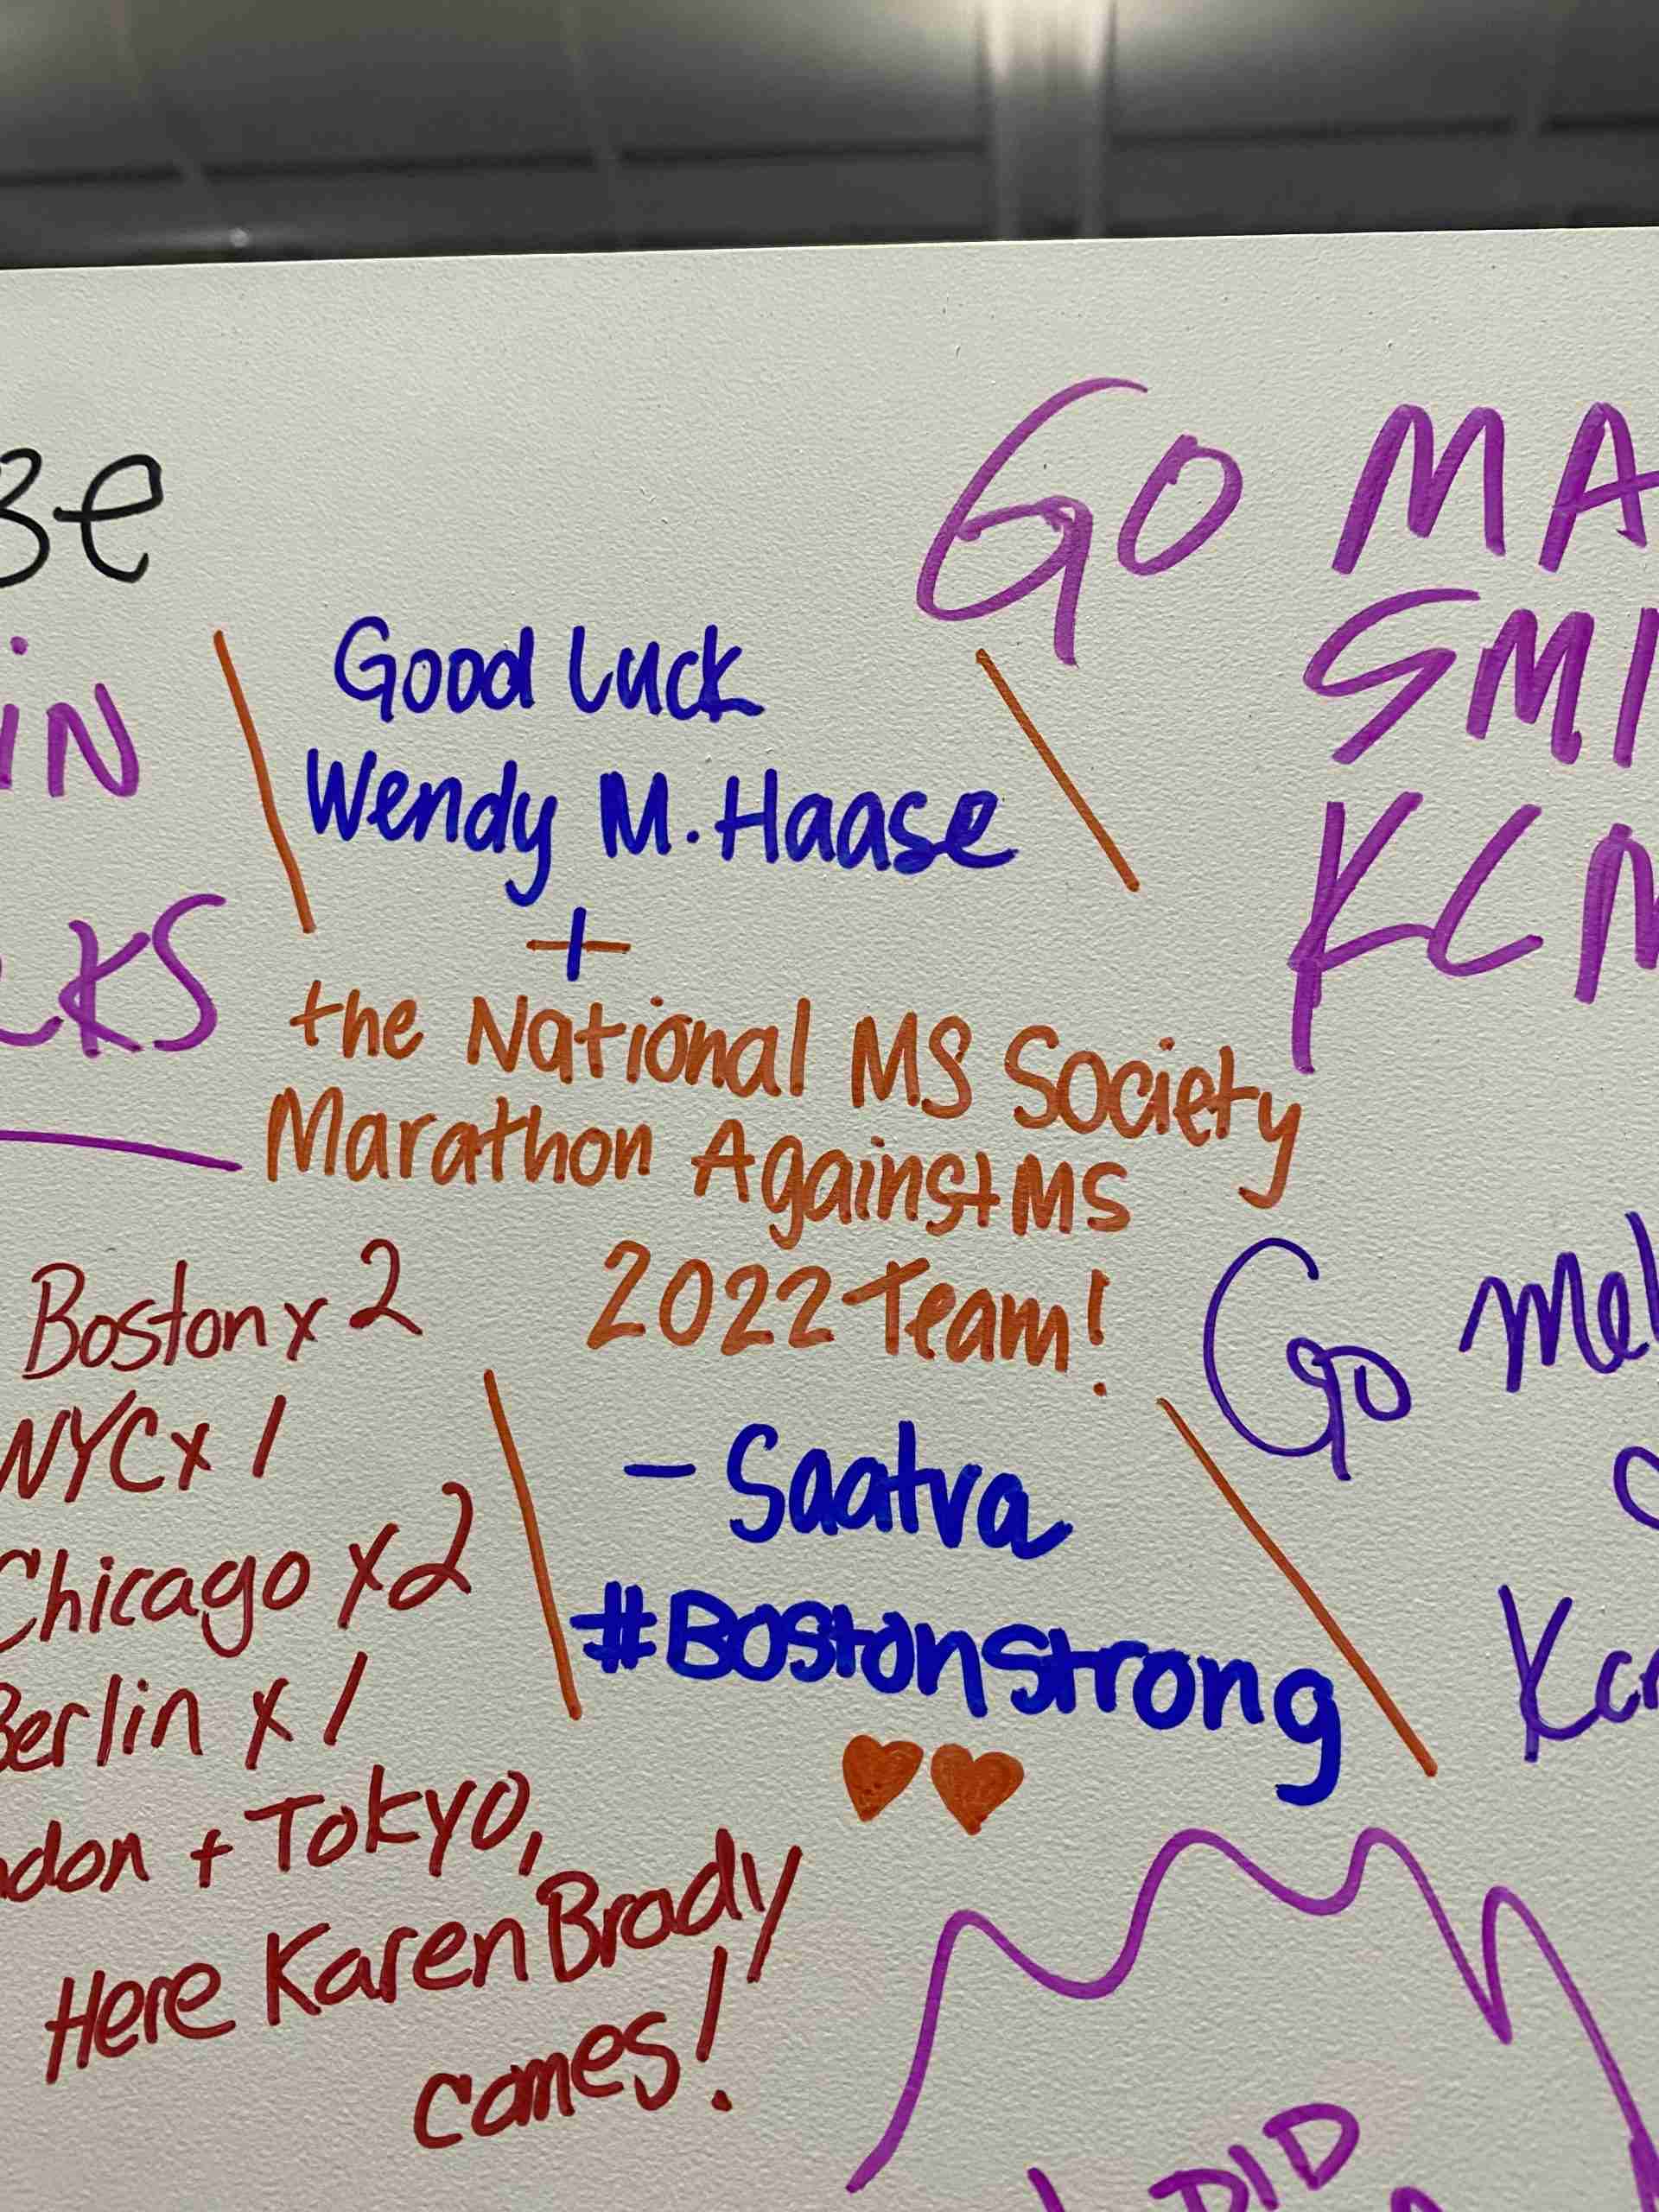 GO
Good Luck
Wendy M. Haase
+
the National MS Society
Marathon Against MS
2022 Team!
- Saatva
#Bostonstrong
Boston x 2
NYC x 1
Chicago x 2
Berlin x 1
+ Tokyo,
Here Karen Brody
comes!
Go
DID